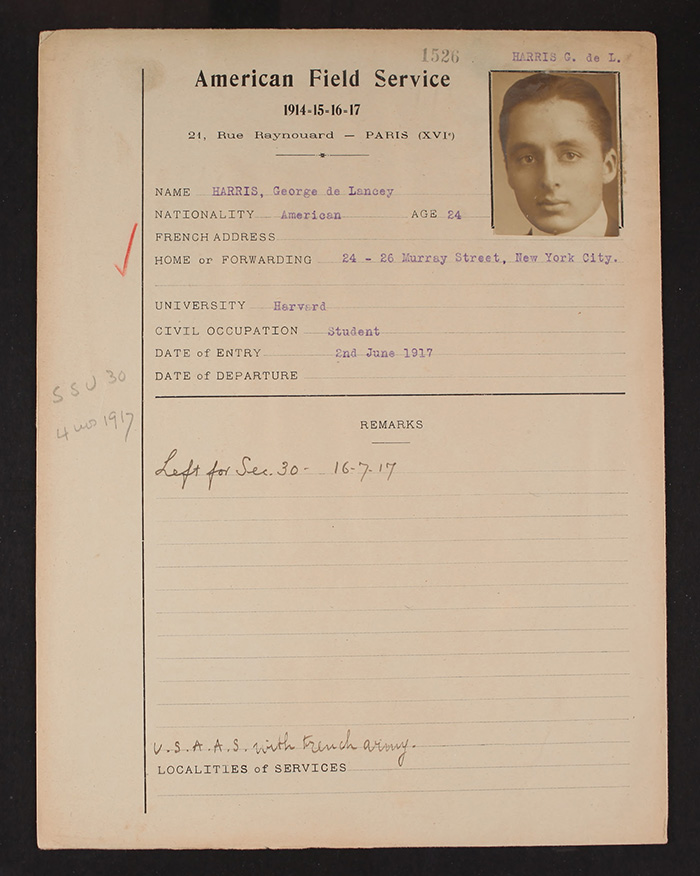 1526 HARRIS G. de L.
American Field Service
1914-15-16-17
21, Rue Raynouard — PARIS (XVIᵉ)
NAME HARRIS, George de Lancey
NATIONALITY American AGE 24
FRENCH ADDRESS
HOME or FORWARDING 24 - 26 Murray Street, New York City.
UNIVERSITY Harvard
CIVIL OCCUPATION Student
DATE of ENTRY 2nd June 1917
DATE of DEPARTURE
SSU 30
4 mos 1917
REMARKS
Left for Sec. 30 - 16-7-17
U.S.A.A.S. with French army.
LOCALITIES of SERVICES